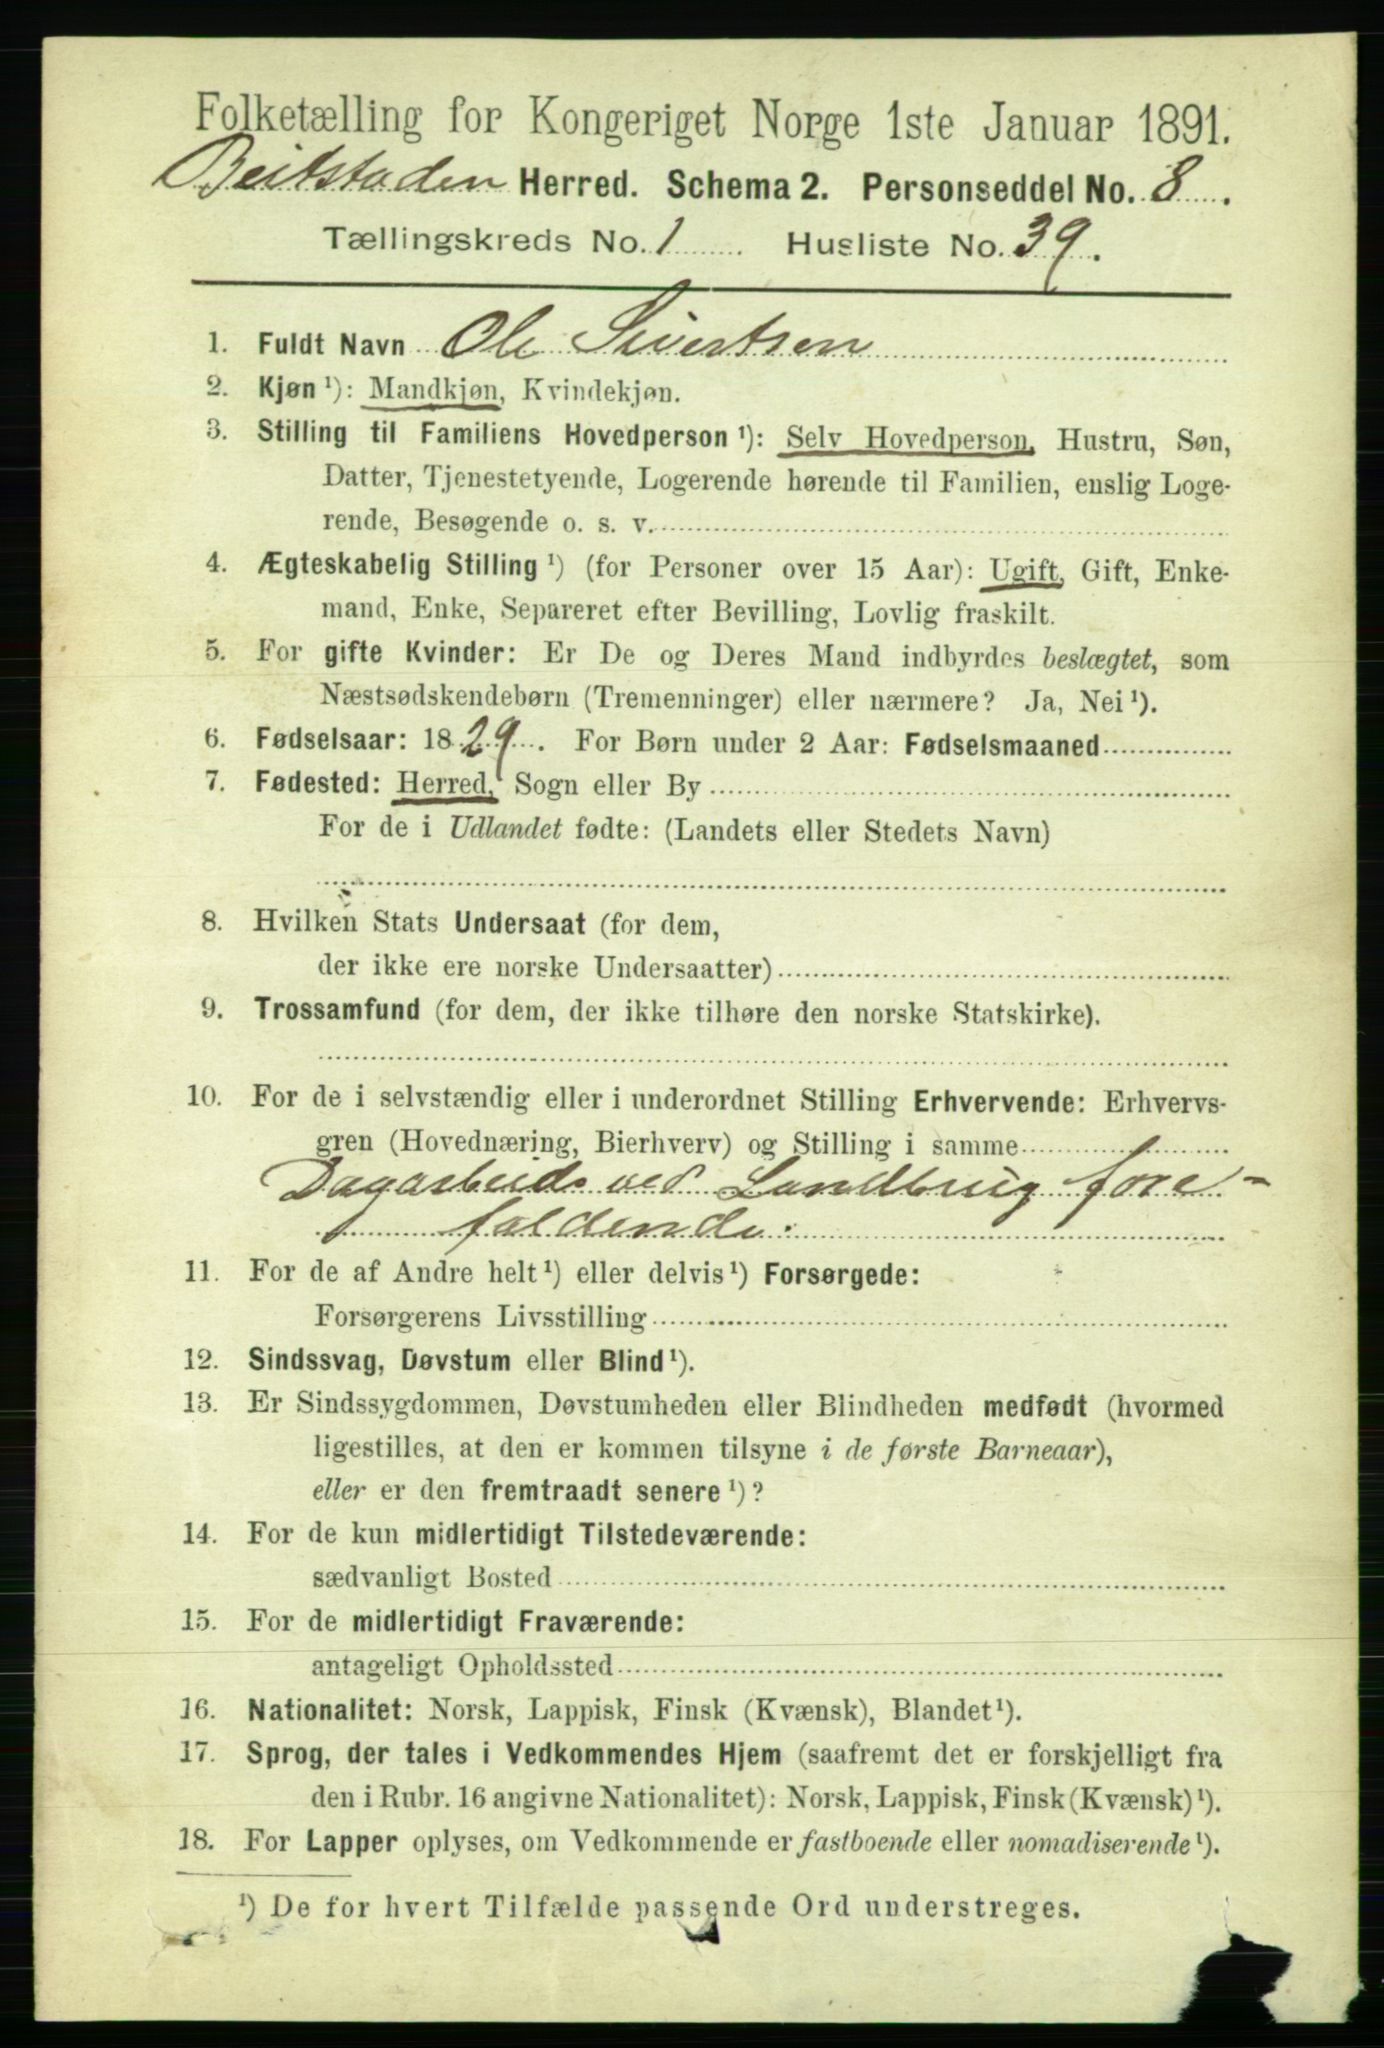 Folketælling for Kongeriget Norge 1ste Januar 1891.
Beitstaden Herred. Schema 2. Personseddel No. 8.
Tællingskreds No. 1 Husliste No. 39.
1. Fuldt Navn Ole Sivertsen
2. Kjøn ¹): Mandkjøn, Kvindekjøn.
3. Stilling til Familiens Hovedperson ¹): Selv Hovedperson, Hustru, Søn,
Datter, Tjenestetyende, Logerende hørende til Familien, enslig Loge-
rende, Besøgende o. s. v.
4. Ægteskabelig Stilling ¹) (for Personer over 15 Aar): Ugift, Gift, Enke-
mand, Enke, Separeret efter Bevilling, Lovlig fraskilt.
5. For gifte Kvinder: Er De og Deres Mand indbyrdes beslægtet, som
Næstsødskendebørn (Tremenninger) eller nærmere? Ja, Nei ¹).
6. Fødselsaar: 1829. For Børn under 2 Aar: Fødselsmaaned
7. Fødested: Herred, Sogn eller By
For de i Udlandet fødte: (Landets eller Stedets Navn)
8. Hvilken Stats Undersaat (for dem,
der ikke ere norske Undersaatter)
9. Trossamfund (for dem, der ikke tilhøre den norske Statskirke).
10. For de i selvstændig eller i underordnet Stilling Erhvervende: Erhvervs-
gren (Hovednæring, Bierhverv) og Stilling i samme
Dagarbeide ved Landbrug fore-
faldende.
11. For de af Andre helt ¹) eller delvis ¹) Forsørgede:
Forsørgerens Livsstilling
12. Sindssvag, Døvstum eller Blind ¹).
13. Er Sindssygdommen, Døvstumheden eller Blindheden medfødt (hvormed
ligestilles, at den er kommen tilsyne i de første Barneaar),
eller er den fremtraadt senere ¹)?
14. For de kun midlertidigt Tilstedeværende:
sædvanligt Bosted
15. For de midlertidigt Fraværende:
antageligt Opholdssted
16. Nationalitet: Norsk, Lappisk, Finsk (Kvænsk), Blandet ¹).
17. Sprog, der tales i Vedkommendes Hjem (saafremt det er forskjelligt fra
den i Rubr. 16 angivne Nationalitet): Norsk, Lappisk, Finsk (Kvænsk) ¹).
18. For Lapper oplyses, om Vedkommende er fastboende eller nomadiserende ¹).
¹) De for hvert Tilfælde passende Ord understreges.